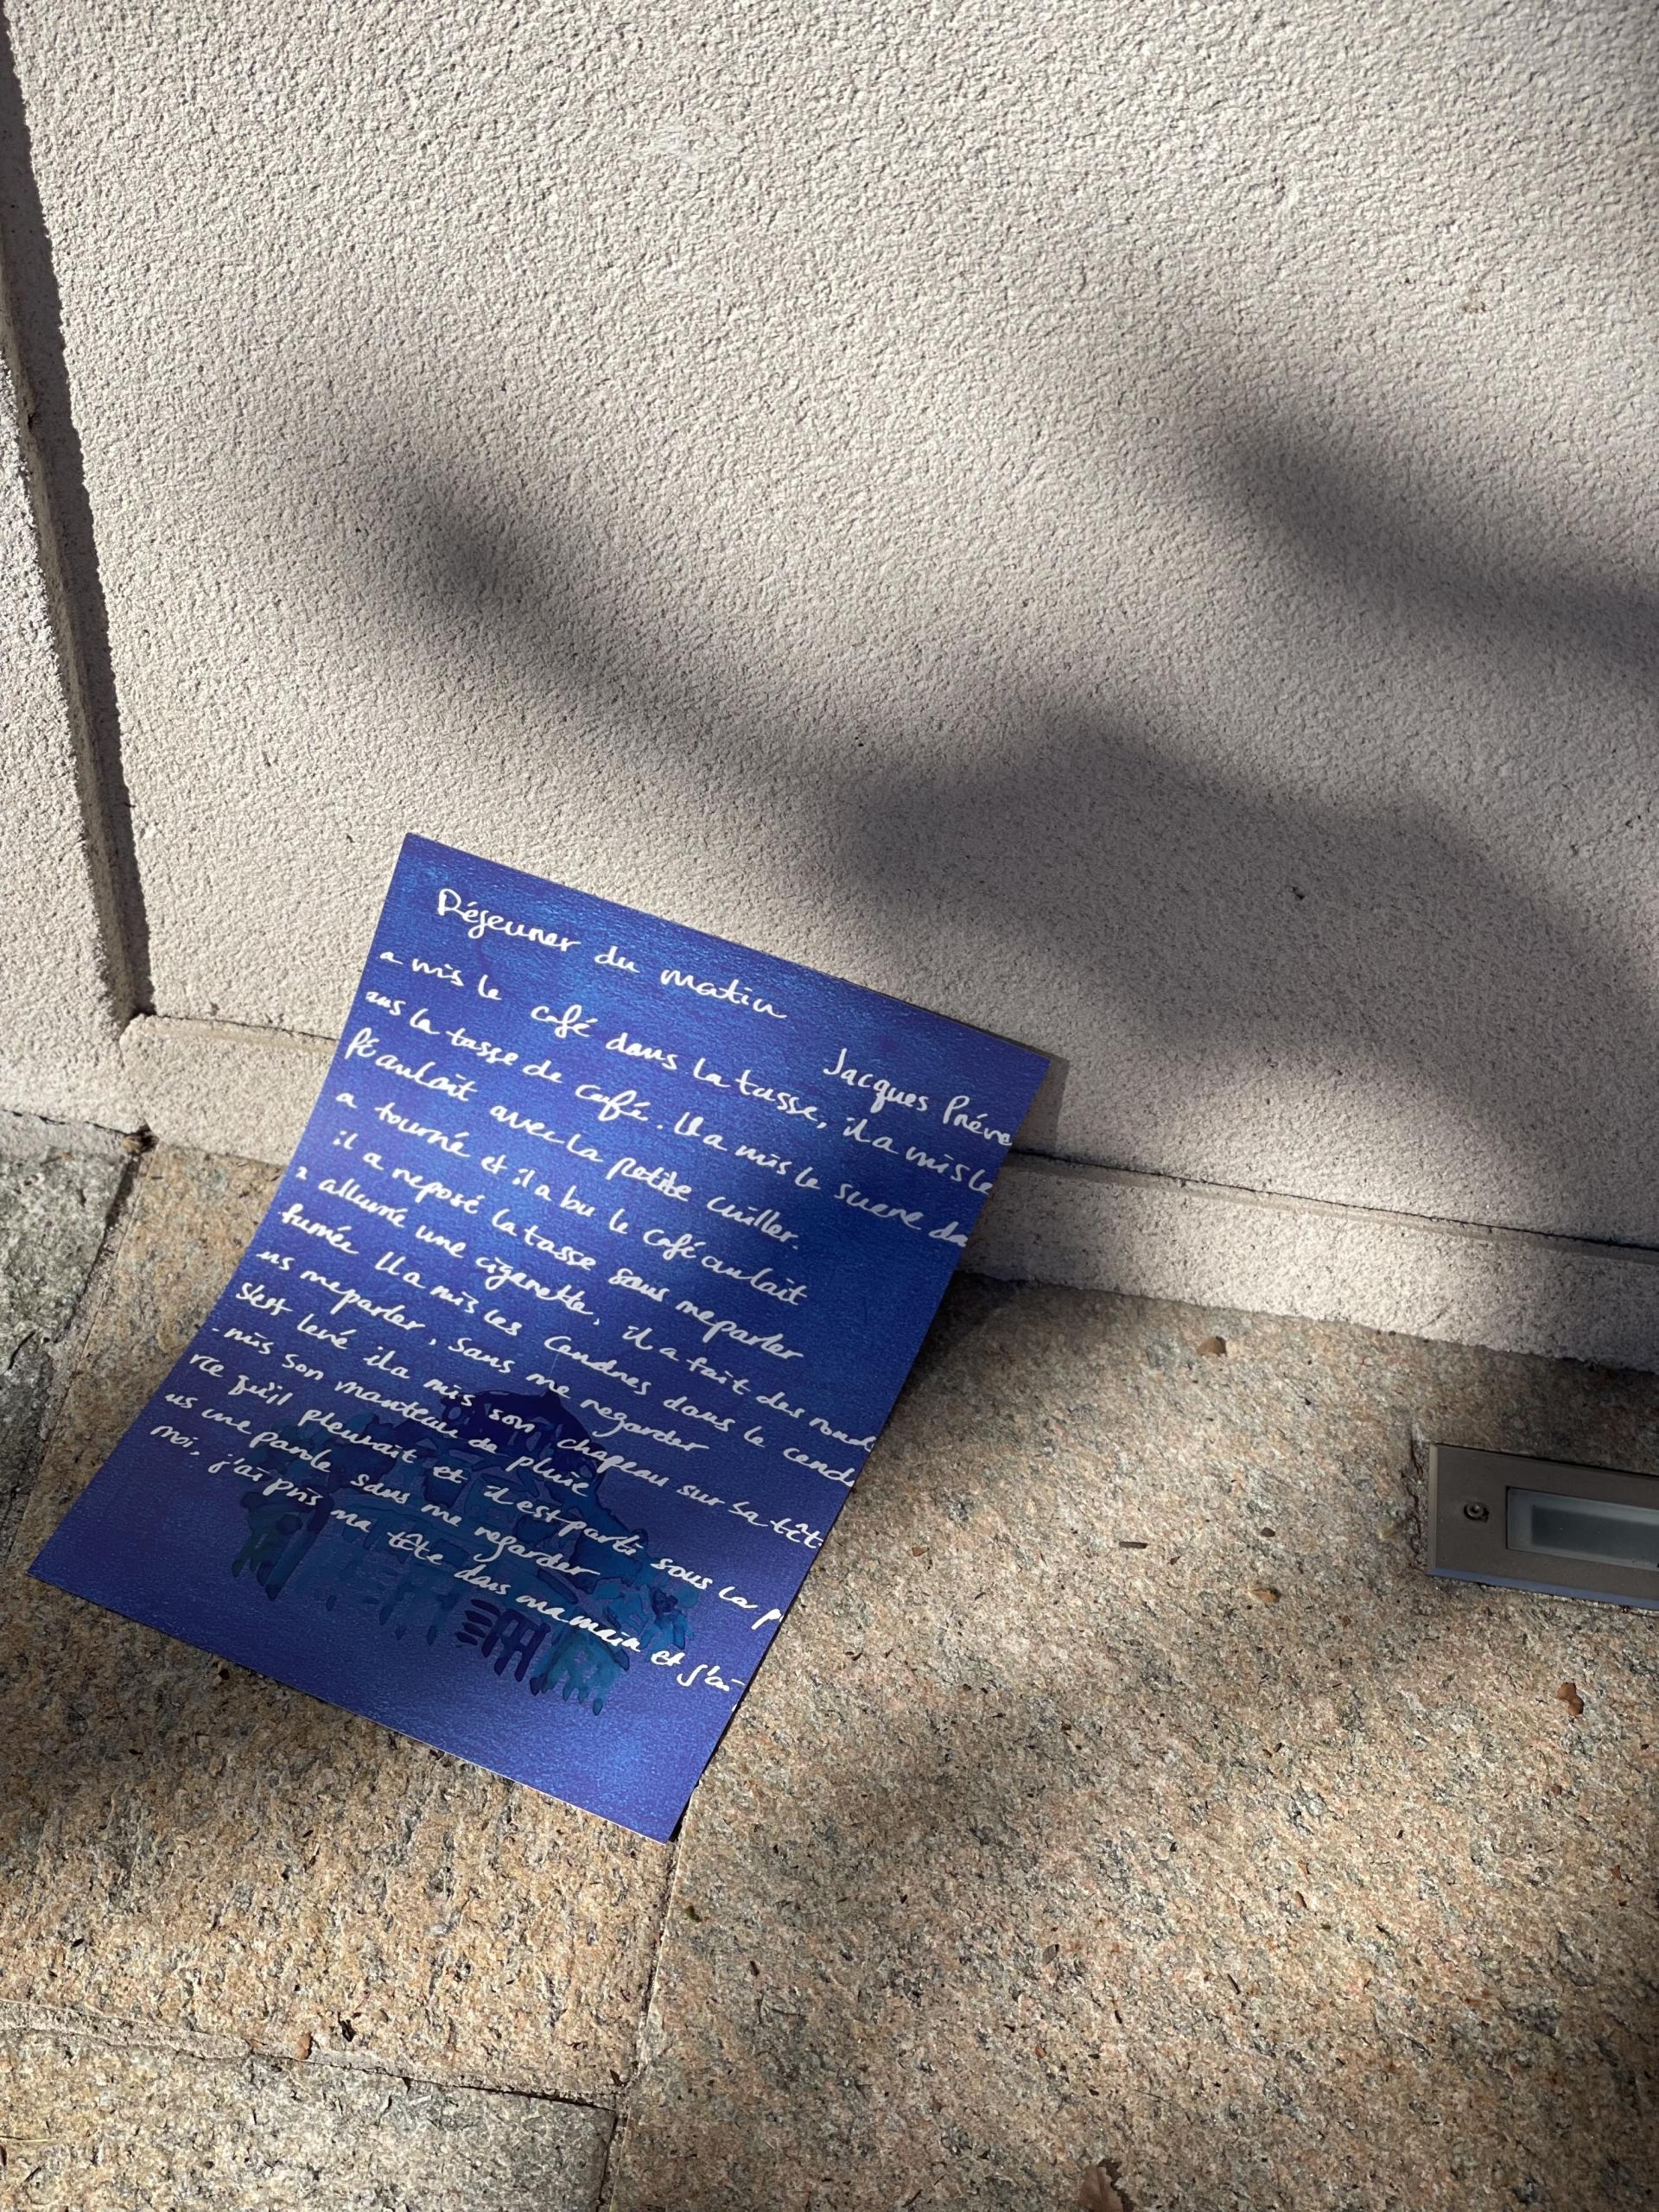 Déjeuner du matin
Jacques Préve
a mis le café dans la tasse, il a mis le
ans la tasse de café. Il a mis le sucre da
fé au lait avec la petite cuiller.
a tourné et il a bu le café au lait
il a reposé la tasse sans me parler
a allumé une cigarette, il a fait des rond
fumée Il a mis les cendres dans le cend
ns me parler, sans me regarder
s'est levé il a mis son chapeau sur sa têt
mis son manteau de pluie
rce qu'il pleuvait et il est parti sous la p
us une parole sans me regarder
moi, j'ai pris ma tête dans ma main et j'ai